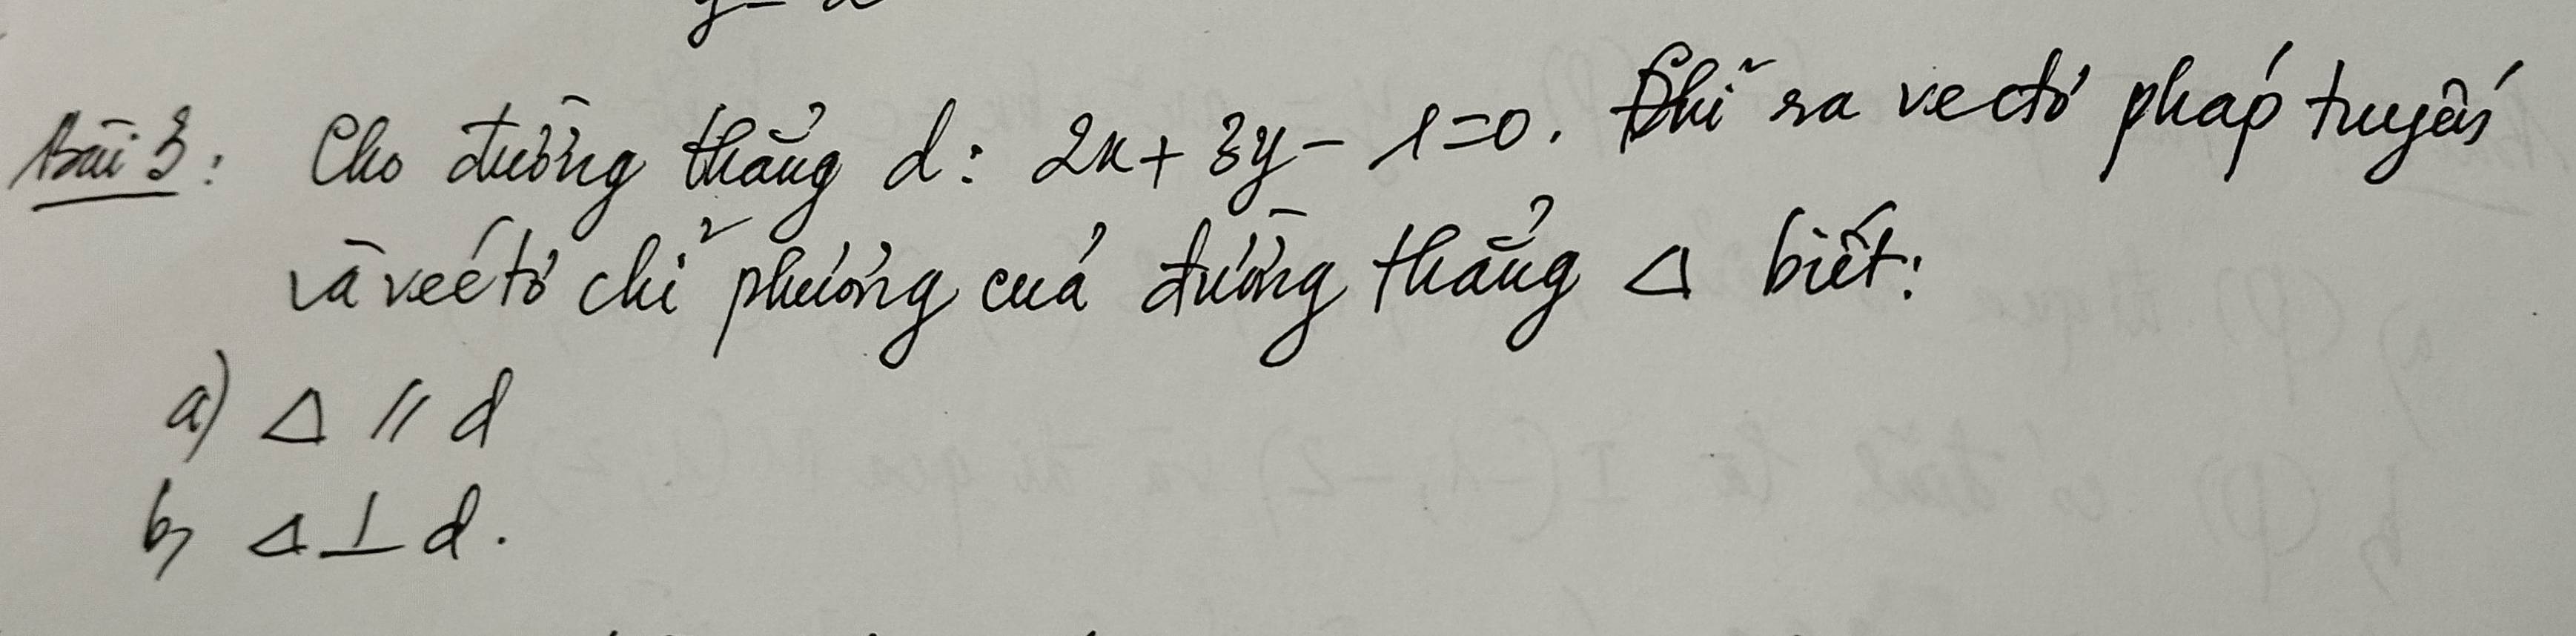 Bài 3: Cho đường thẳng d: 2x + 3y - 1 = 0. Chỉ ra vectơ pháp tuyến
và vectơ chỉ phương của đường thẳng Δ biết:
a) Δ // d
b) Δ ⊥ d.